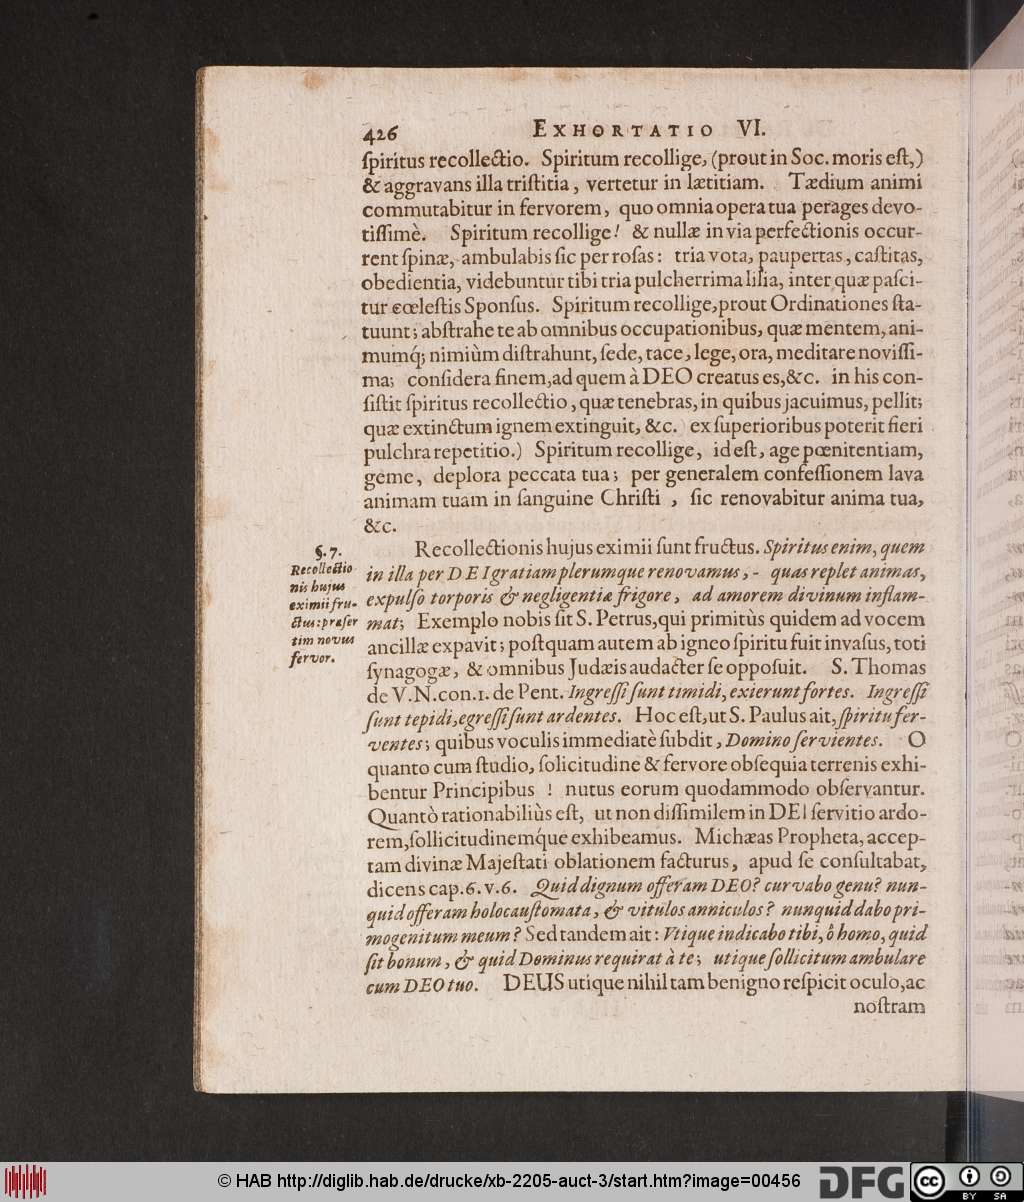 426 EXHORTATIO VI.
ſpiritus recollectio. Spiritum recollige, (prout in Soc. moris eſt,)
& aggravans illa triſtitia, vertetur in lætitiam. Tædium animi
commutabitur in fervorem, quo omnia opera tua perages devo-
tiſſimè. Spiritum recollige! & nullæ in via perfectionis occur-
rent ſpinæ, ambulabis ſic per roſas: tria vota, paupertas, caſtitas,
obedientia, videbuntur tibi tria pulcherrima lilia, inter quæ paſci-
tur cœleſtis Sponſus. Spiritum recollige, prout Ordinationes ſta-
tuunt; abſtrahe te ab omnibus occupationibus, quæ mentem, ani-
mumq́; nimiùm diſtrahunt, ſede, tace, lege, ora, meditare noviſſi-
ma; conſidera finem, ad quem à DEO creatus es, &c. in his con-
ſiſtit ſpiritus recollectio, quæ tenebras, in quibus jacuimus, pellit;
quæ extinctum ignem extinguit, &c. ex ſuperioribus poterit fieri
pulchra repetitio.) Spiritum recollige, id eſt, age pœnitentiam,
geme, deplora peccata tua; per generalem confeſſionem lava
animam tuam in ſanguine Chriſti, ſic renovabitur anima tua,
&c.
§. 7.
Recollectio-
nis hujus
eximii fru-
ctus: præſer
tim novus
fervor.
Recollectionis hujus eximii ſunt fructus. Spiritus enim, quem
in illa per DEI gratiam plerumque renovamus, - quas replet animas,
expulſo torporis & negligentiæ frigore, ad amorem divinum inflam-
mat; Exemplo nobis ſit S. Petrus, qui primitùs quidem ad vocem
ancillæ expavit; poſtquam autem ab igneo ſpiritu fuit invaſus, toti
ſynagogæ, & omnibus Judæis audacter ſe oppoſuit. S. Thomas
de V. N. con. 1. de Pent. Ingreſſi ſunt timidi, exierunt fortes. Ingreſſi
ſunt tepidi, egreſſi ſunt ardentes. Hoc eſt, ut S. Paulus ait, ſpiritu fer-
ventes; quibus voculis immediatè ſubdit, Domino ſervientes. O
quanto cum ſtudio, ſolicitudine & fervore obſequia terrenis exhi-
bentur Principibus! nutus eorum quodammodo obſervantur.
Quantò rationabiliùs eſt, ut non diſſimilem in DEI ſervitio ardo-
rem, ſollicitudinemq́ue exhibeamus. Michæas Propheta, accep-
tam divinæ Majeſtati oblationem facturus, apud ſe conſultabat,
dicens cap. 6. v. 6. Quid dignum offeram DEO? curvabo genu? nun-
quid offeram holocauſtomata, & vitulos anniculos? nunquid dabo pri-
mogenitum meum? Sed tandem ait: Vtique indicabo tibi, ô homo, quid
ſit bonum, & quid Dominus requirat à te; utique ſollicitum ambulare
cum DEO tuo. DEUS utique nihil tam benigno reſpicit oculo, ac
noſtram
© HAB http://diglib.hab.de/drucke/xb-2205-auct-3/start.htm?image=00456
DFG
cc
BY SA